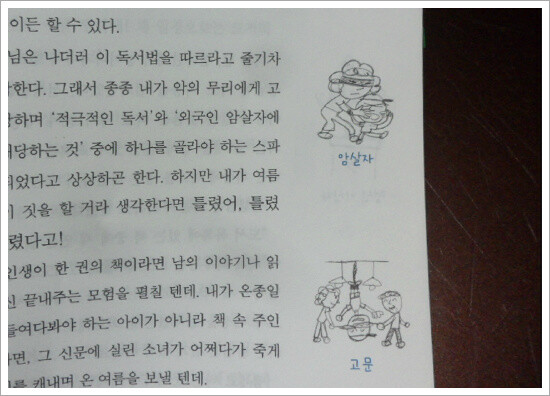 이든 할 수 있다.
님은 나더러 이 독서법을 따르라고 줄기차
한다. 그래서 종종 내가 악의 무리에게 고
당하며 '적극적인 독서'와 '외국인 암살자에
당하는 것' 중에 하나를 골라야 하는 스파
되었다고 상상하곤 한다. 하지만 내가 여름
이 짓을 할 거라 생각한다면 틀렸어, 틀렸
렸다고!
인생이 한 권의 책이라면 남의 이야기나 읽
신 끝내주는 모험을 펼칠 텐데. 내가 온종일
들여다봐야 하는 아이가 아니라 책 속 주인
라면, 그 신문에 실린 소녀가 어쩌다가 죽게
를 캐내며 온 여름을 보낼 텐데.
암살자
고문